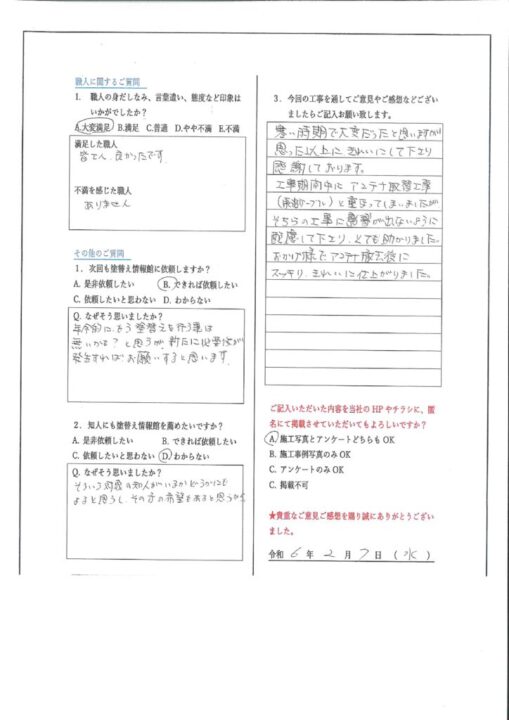 職人に関するご質問
1. 職人の身だしなみ、言葉遣い、態度など印象は
いかがでしたか？
A.大変満足 B.満足 C.普通 D.やや不満 E.不満
満足した職人
皆さん 良かったです
不満を感じた職人
ありません
その他のご質問
1. 次回も塗替え情報館に依頼しますか？
A. 是非依頼したい B. できれば依頼したい
C. 依頼したいと思わない D. わからない
Q. なぜそう思いましたか？
年令的に、もう塗替えを行う事は
無いかな？と思うが、新たに必要性が
発生すればお願いすると思います。
2. 知人にも塗替え情報館を薦めたいですか？
A. 是非依頼したい B. できれば依頼したい
C. 依頼したいと思わない D. わからない
Q. なぜそう思いましたか？
そういう対象の知人がいるかどうかにも
よると思うし、その方の希望もあると思うから
3. 今回の工事を通してご意見やご感想などござい
ましたらご記入お願い致します。
寒い時期で大変だったと思いますが
思った以上に きれいにして下さり
感謝しております。
工事期間中に アンテナ取替工事
と重なってしまいましたが
そちらの工事に影響が出ないように
配慮して下さり、とても助かりました。
おかげ様で アンテナ撤去後に
スッキリ、きれいに仕上がりました。
ご記入いただいた内容を当社の HP やチラシに、匿
名にて掲載させていただいてもよろしいですか？
A. 施工写真とアンケートどちらも OK
B. 施工事例写真のみ OK
C. アンケートのみ OK
C. 掲載不可
★貴重なご意見ご感想を賜り誠にありがとうござい
ました。
令和 6 年 2 月 7 日 (水)